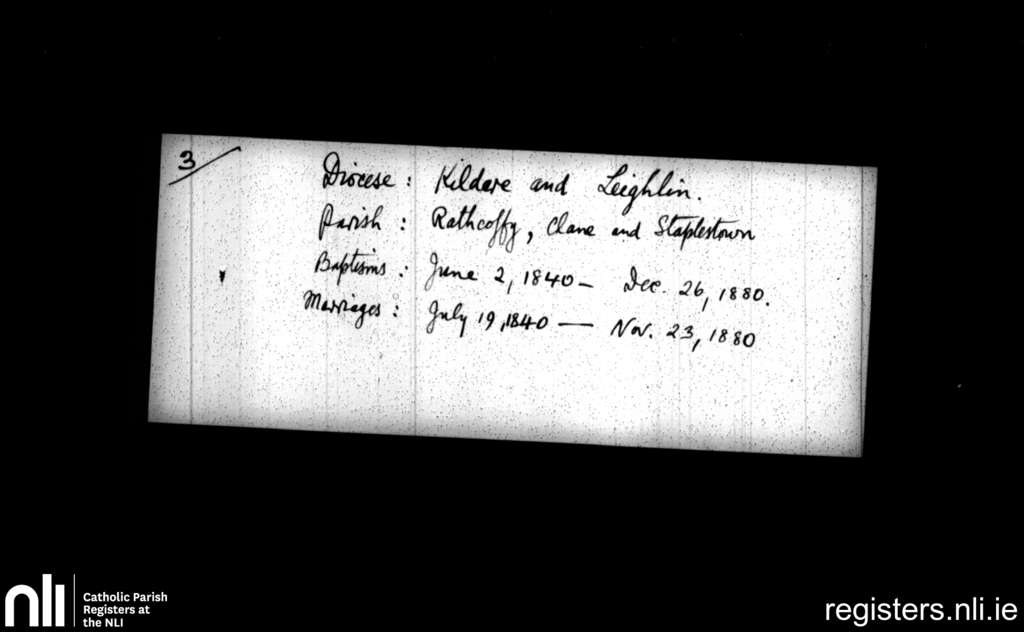 3/
Diocese : Kildare and Leighlin.
Parish : Rathcoffy, Clane and Staplestown
Baptisms : June 2, 1840 – Dec. 26, 1880.
Marriages : July 19, 1840 — Nov. 23, 1880
nli
Catholic Parish
Registers at
the NLI
registers.nli.ie